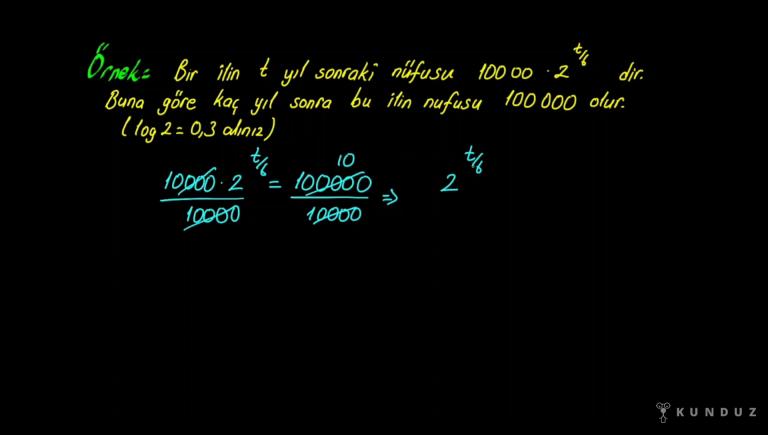 Örnek= Bir ilin t yıl sonraki nüfusu 10000 · 2^{t/6} dir.
Buna göre kaç yıl sonra bu ilin nufusu 100 000 olur.
(log 2 = 0,3 alınız)
10000 · 2^{t/6} / 10000 = 100000 / 10000 10 ⇒ 2^{t/6}
KUNDUZ